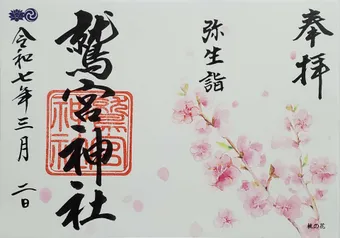 奉拝
弥生詣
鷲宮神社
鷲宮
神社
令和七年三月二日
桃の花